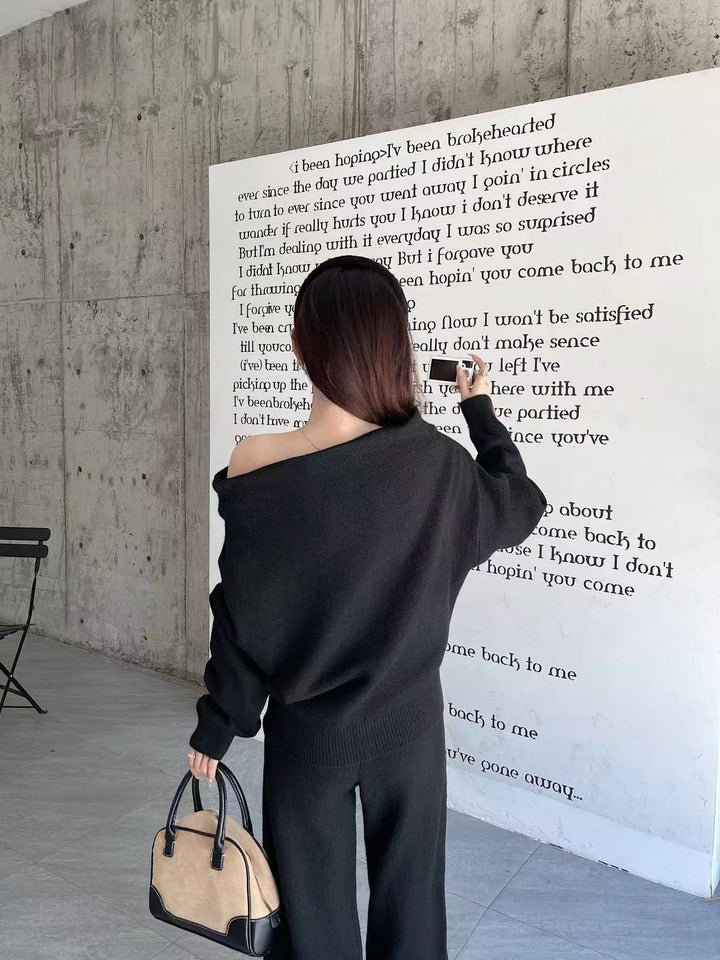 <i been hoping>I'v been brokehearted
ever since the day we partied I didn't know where
to turn to ever since you went away I goin' in circles
wander if really hurts you I know i don't deserve it
But I'm dealing with it everyday I was so surprised
I didnt know But i forgave you
for throwing hopin' you come back to me
I forgive
I've been Now I won't be satisfied
till don't make sence
(i've) been left I've
picking up the here with me
I'v beenbrokeh the partied
I don't have you've
about
come back to
I know I don't
hopin' you come
back to me
back to me
gone away...